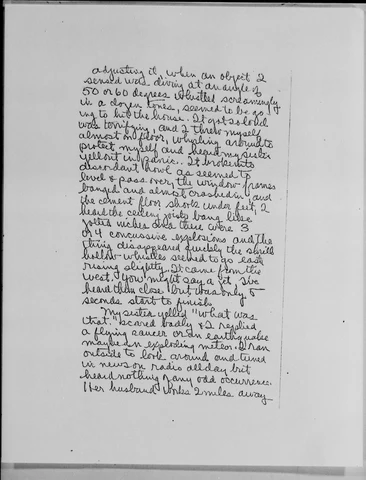 adjusting it when an object I
sensed was diving at an angle of
50 or 60 degrees whistled screamingly
in a dozen tones, seemed to be go
ing to hit the house. It got so loud
was terrifying, and I threw myself
almost on floor, whirling around to
protect myself and heard my sister
yell out in panic. It broke into
discordant howl as seemed to
level & pass over the window frames
banged and almost crashed in and
the cement floor shook under feet, I
heard the ceiling joists bang like
jolted inches and there were 3
or 4 concussive explosions and the
thing disappeared quickly the shrill
hollow whistles seemed to go east
rising slightly. It came from the
west. You might say a jet I've
heard them close but was only 5
seconds start to finish.
My sister yelled "what was
that." scared badly & I replied
a flying saucer or an earthquake
maybe an exploding meteor. I ran
outside to look around and tuned
in news on radio all day but
heard nothing of any odd occurrence.
Her husband works 2 miles away